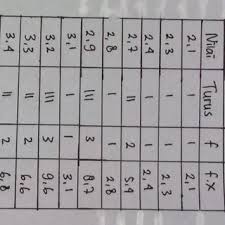 Nilai Turus f f.x
2,1 I 1 2,1
2,3 I 1 2,3
2,4 I 1 2,4
2,7 II 2 5,4
2,8 I 1 2,8
2,9 III 3 8,7
3,1 I 1 3,1
3,2 III 3 9,6
3,3 II 2 6,6
3,4 II 2 6,8